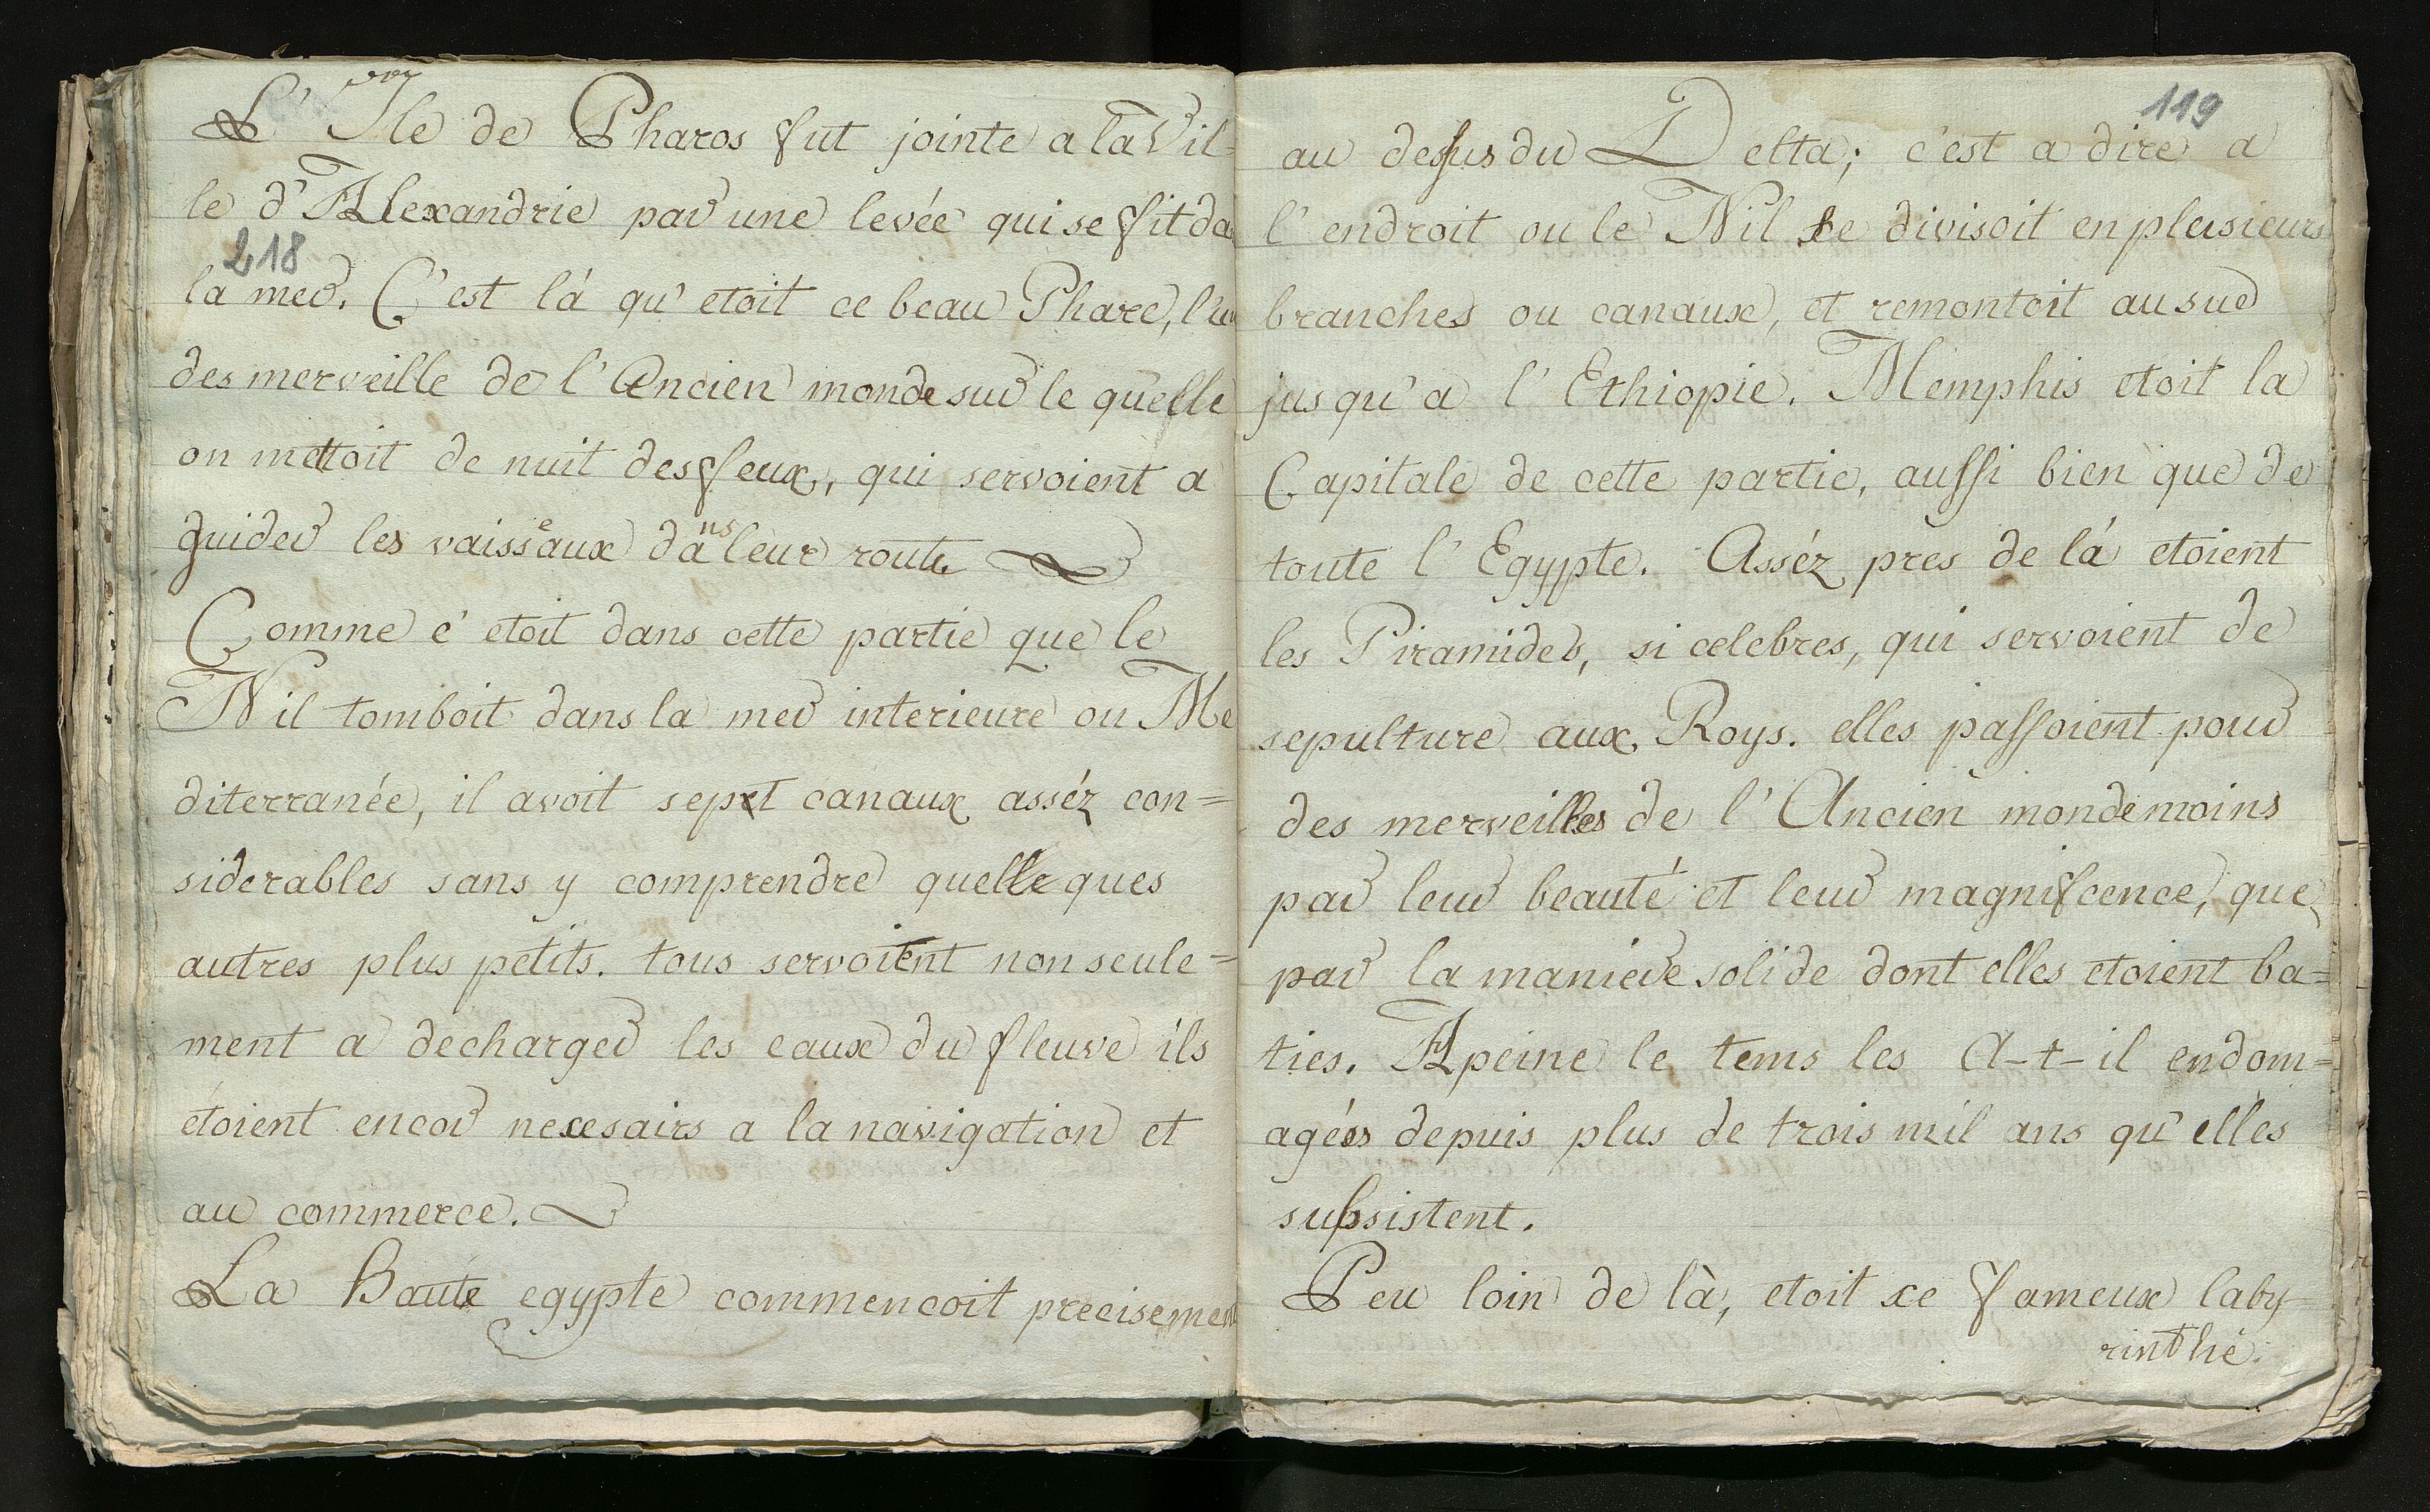 L' Ile de Pharos fut jointe a la Vil-
le d'Alexandrie par une levée qui se fit da
218
la mer. C'est là qu' etoit ce beau Phare, l'u
des merveille de l'Ancien monde sur le quelle
on mettoit de nuit des feux, qui servoient a
guider les vaisseaux dans leur route
Comme c' etoit dans cette partie que le
Nil tomboit dans la mer interieure ou Me
diterranée, il avoit sept canaux asséz con=
siderables sans y comprendre quelleques
autres plus petits. tous servoient non seule=
ment a decharger les eaux du fleuve ils
étoient encor necesairs a la navigation et
au commerce.
La Haute egypte commencoit precisemen
119
au dessus du Delta; c'est a dire a
l' endroit ou le Nil se divisoit en plusieurs
branches ou canaux, et remontoit au sud
jusqu'a l' Ethiopie. Memphis etoit la
Capitale de cette partie, aussi bien que de
toute l' Egypte. Asséz pres de là etoient
les Piramides, si celebres, qui servoient de
sepulture aux Roys. elles passoient pour
des merveilles de l' Ancien monde moins
par leur beauté et leur magnifcence, que
par la maniere solide dont elles etoient ba=
ties. Apeine le tems les A-t-il endom=
agées depuis plus de trois mil ans qu' elles
subsistent.
Peu loin de là, etoit ce fameux laby-
rinthe.